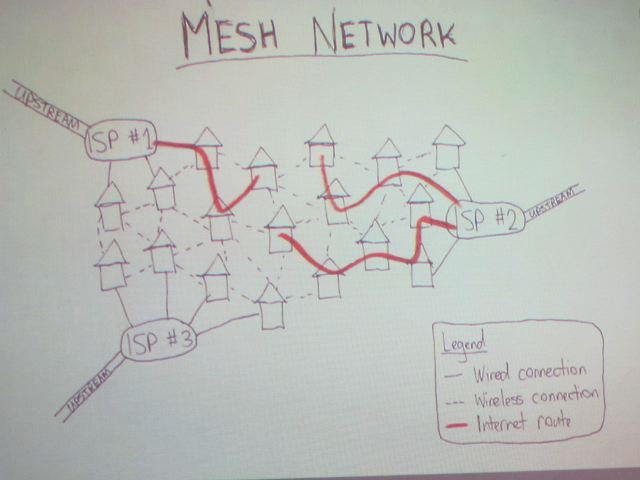 MESH NETWORK
UPSTREAM
ISP #1
ISP #2
UPSTREAM
ISP #3
UPSTREAM
Legend
Wired connection
Wireless connection
Internet route